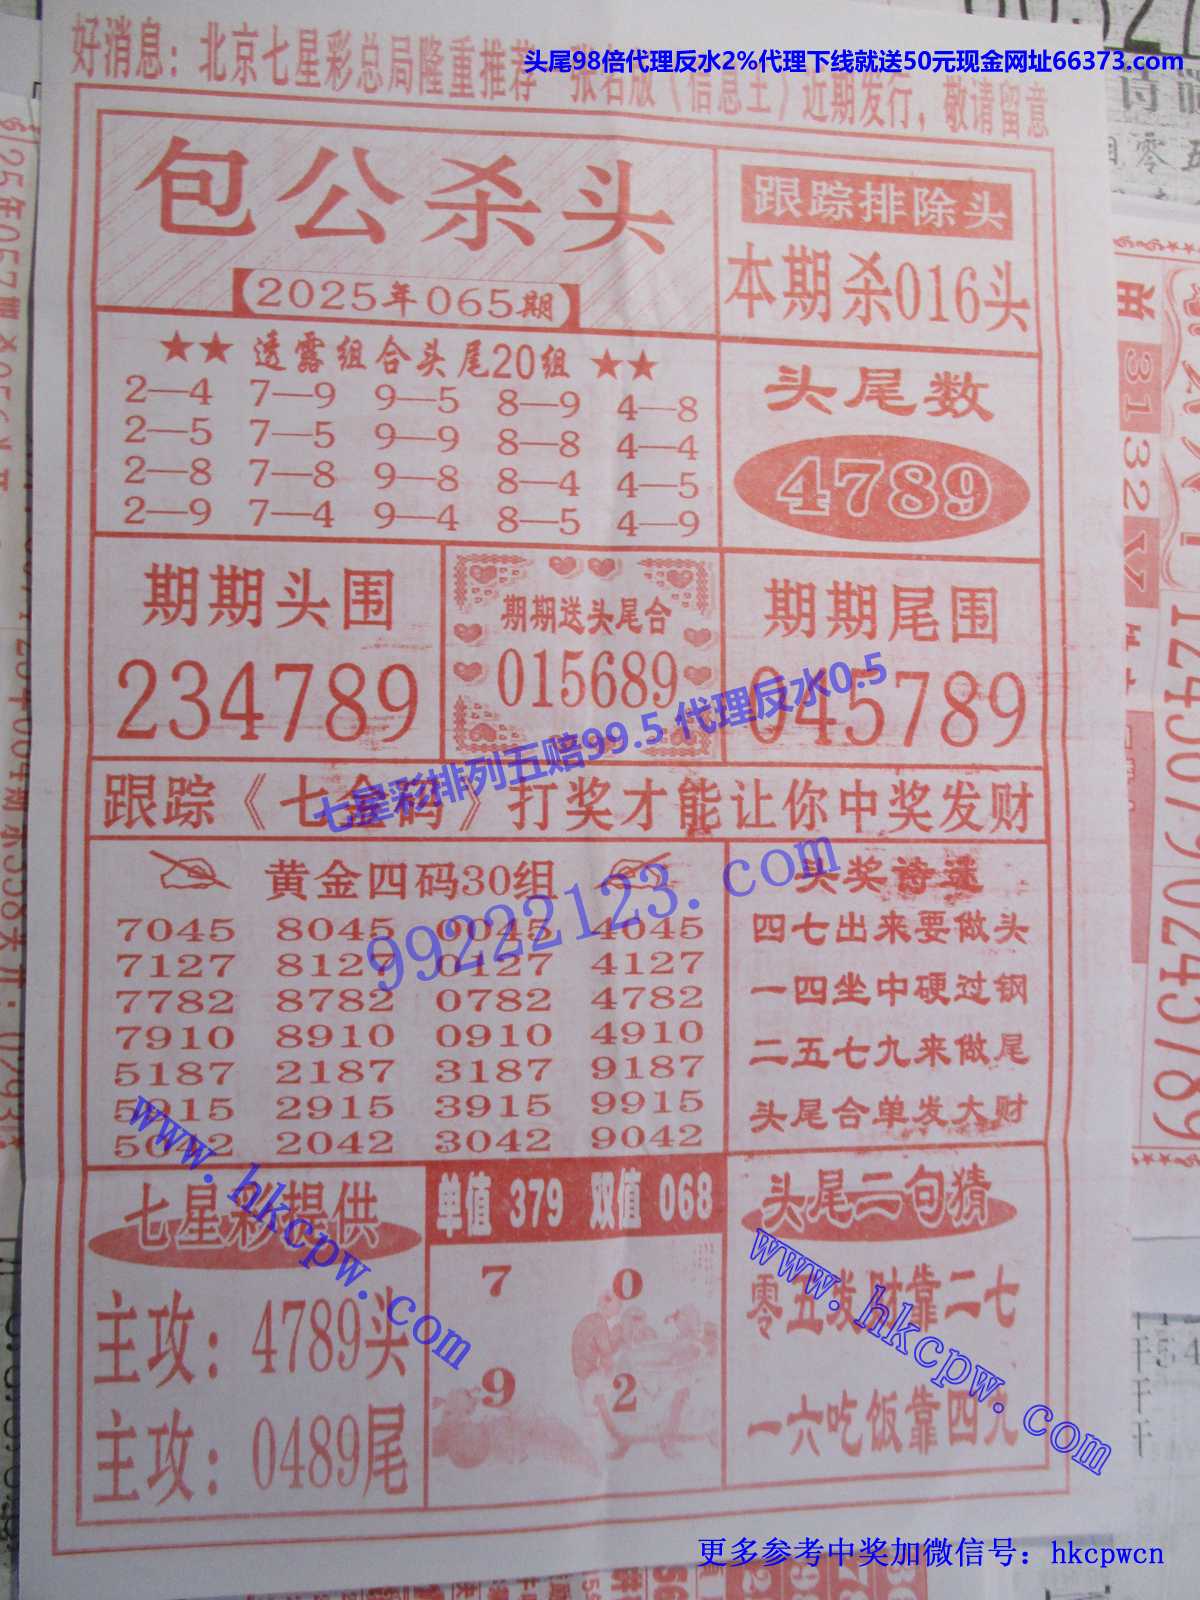 好消息：北京七星彩总局隆重推荐一张名版（信息王）近期发行，敬请留意
头尾98倍代理反水2%代理下线就送50元现金网址66373.com
包公杀头
【2025年065期】
跟踪排除头
本期杀016头
★★ 透露组合头尾20组 ★★
2—4 7—9 9—5 8—9 4—8
2—5 7—5 9—9 8—8 4—4
2—8 7—8 9—8 8—4 4—5
2—9 7—4 9—4 8—5 4—9
头尾数
4789
期期头围
234789
期期送头尾合
015689
期期尾围
045789
七星彩排列五赔99.5 代理反水0.5
跟踪《七金码》打奖才能让你中奖发财
黄金四码30组
7045 8045 0045 4045
7127 8127 0127 4127
7782 8782 0782 4782
7910 8910 0910 4910
5187 2187 3187 9187
5915 2915 3915 9915
5042 2042 3042 9042
99222123.com
头奖诗迷
四七出来要做头
一四坐中硬过钢
二五七九来做尾
头尾合单发大财
七星彩提供
主攻：4789头
主攻：0489尾
www.hkcpw.com
单值 379 双值 068
7 0
9 2
头尾二句猜
零五发财靠二七
一六吃饭靠四九
www.hkcpw.com
更多参考中奖加微信号：hkcpwcn